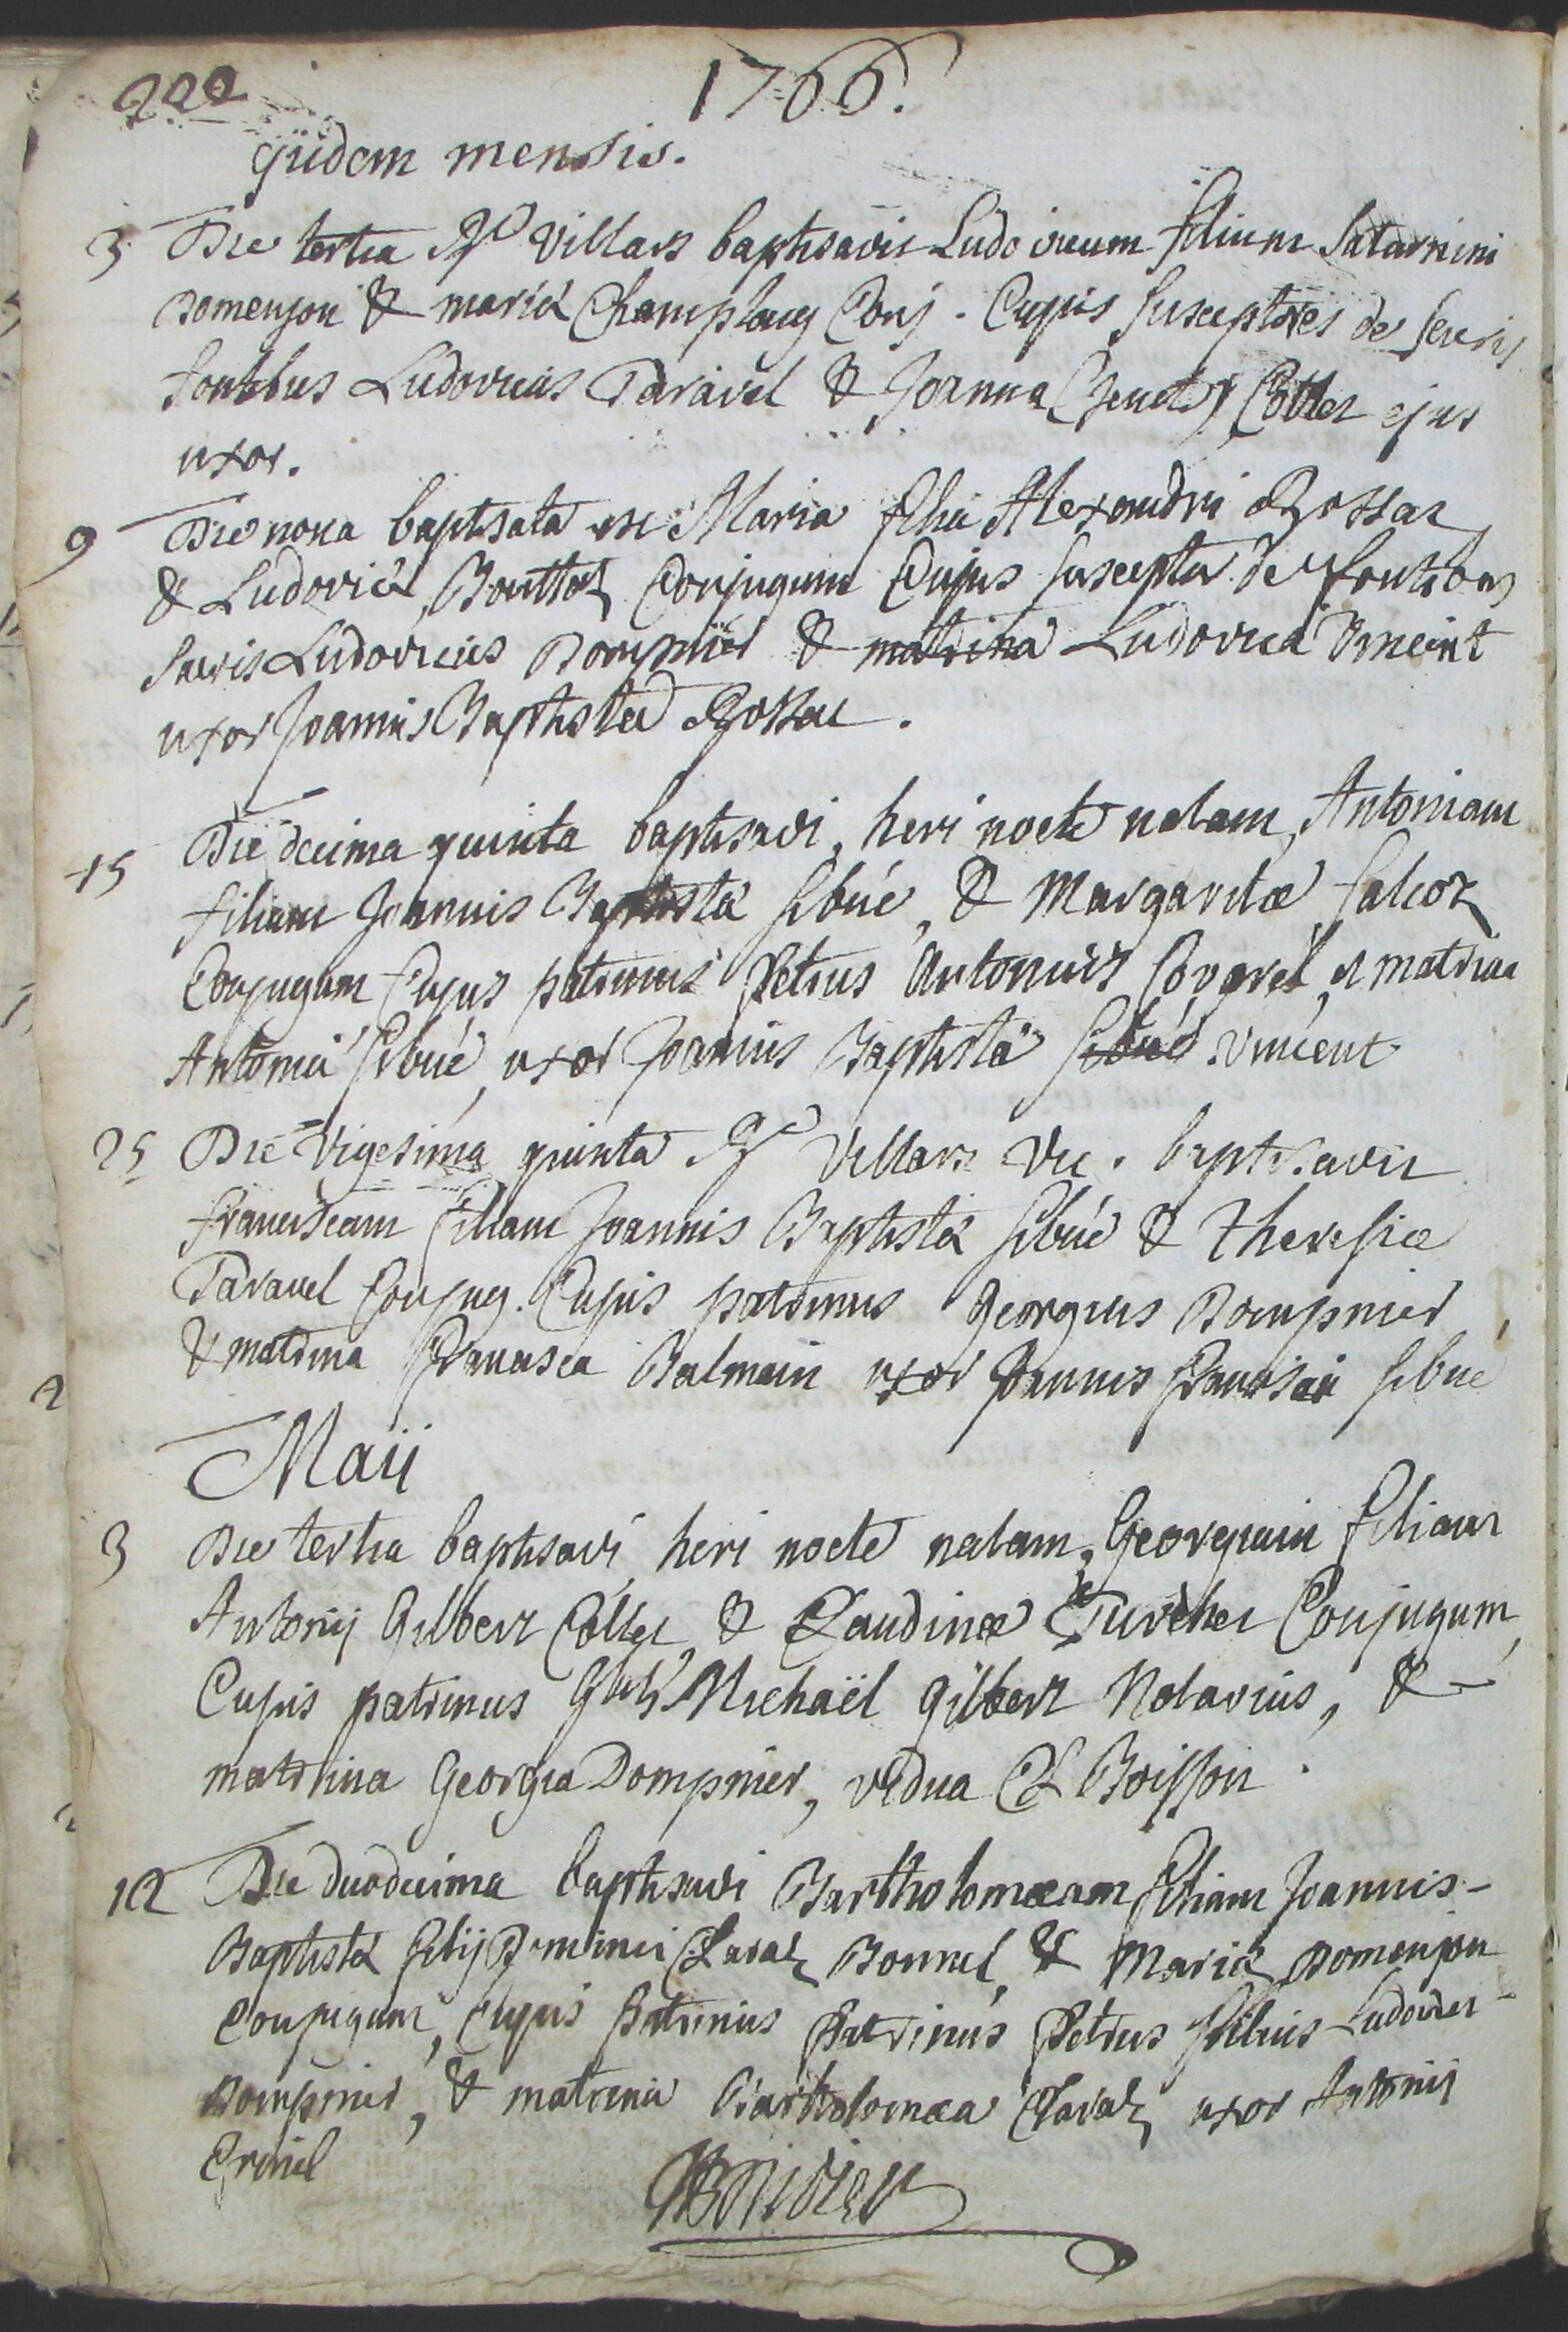 222
1766.
ejusdem mensis.
3 Die tertia Rd Villars baptisavit Ludovicum filium Saturnini
Domenjon & mariæ Champlong Conj. Cujus Susceptores de Sacris
fontibus Ludovicus Taravel & Joanna Cottet ejus
uxor.
9 Die nona baptisata est Maria filia Alexandri Rossat
& Ludovicæ Bouttaz Conjugum Cujus Susceptor de fontibus
Sacris Ludovicus Dompnier & matrina Ludovica Vincent
uxor Joannis Baptistæ Rossat.
15 Die decima quinta baptisavi, heri nocte natam, Antoniam
filiam Joannis Baptistæ Sibué, & Margaritæ falcoz
Conjugum Cujus patrinus Petrus Antonius Covarel et matrina
Antonia Sibué, uxor Joannis Baptistæ Sibué vincent
25 Die Vigesima quinta Rd Villars Vic. baptisavit
franciscam filiam Joannis Baptistæ Sibué & Theresiæ
Taravel Conjug. Cujus patrinus Georgius Dompnier
& matrina francisca Balmain uxor Joannis francisci Sibue
Maii
3 Die tertia baptisavi, heri nocte natam, Georgiam filiam
Antonij Gilbert Collet & Claudinæ Turcher Conjugum,
Cujus patrinus Michaël Gilbert Notarius, &
matrina Georgia Dompnier, vidua Cl Boisson.
12 Die duodecima baptisavi Bartholomæam filiam Joannis-
Baptistæ filij Dominici Claraz Bonnel, & Mariæ Domenjon
Conjugum, Cujus Patrinus Patrinus Petrus filius Ludovici
Dompnier, & matrina Bartholomæa Claraz uxor Antonij